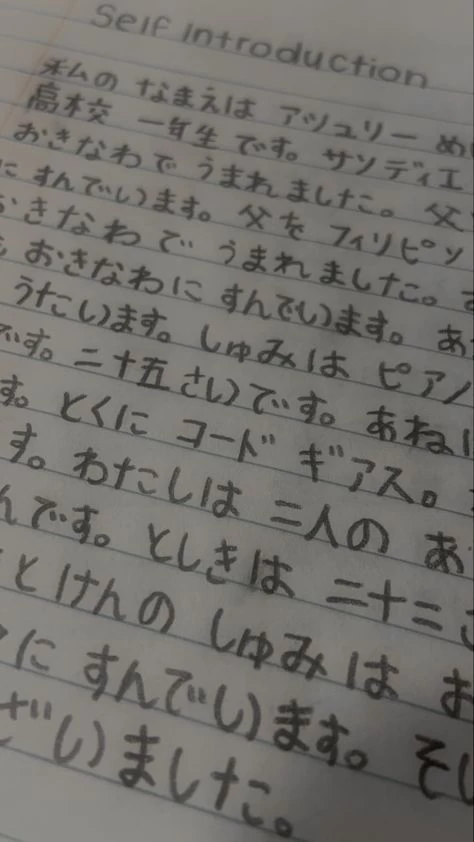 Self Introduction
私の なまえは アシュリー め
高校 一年生 です。 サンディエ
おきなわで うまれました。 父
に すんでいます。 父を フィリピン
おきなわで うまれました。
おきなわに すんでいます。 あ
うたいます。 しゅみは ピアノ
です。 二十五さいです。 あねは
す。 とくに コードギアス。
す。 わたしは 二人の あ
んです。 としきは 二十二
とけんの しゅみは お
に すんでいます。 そし
ざいました。